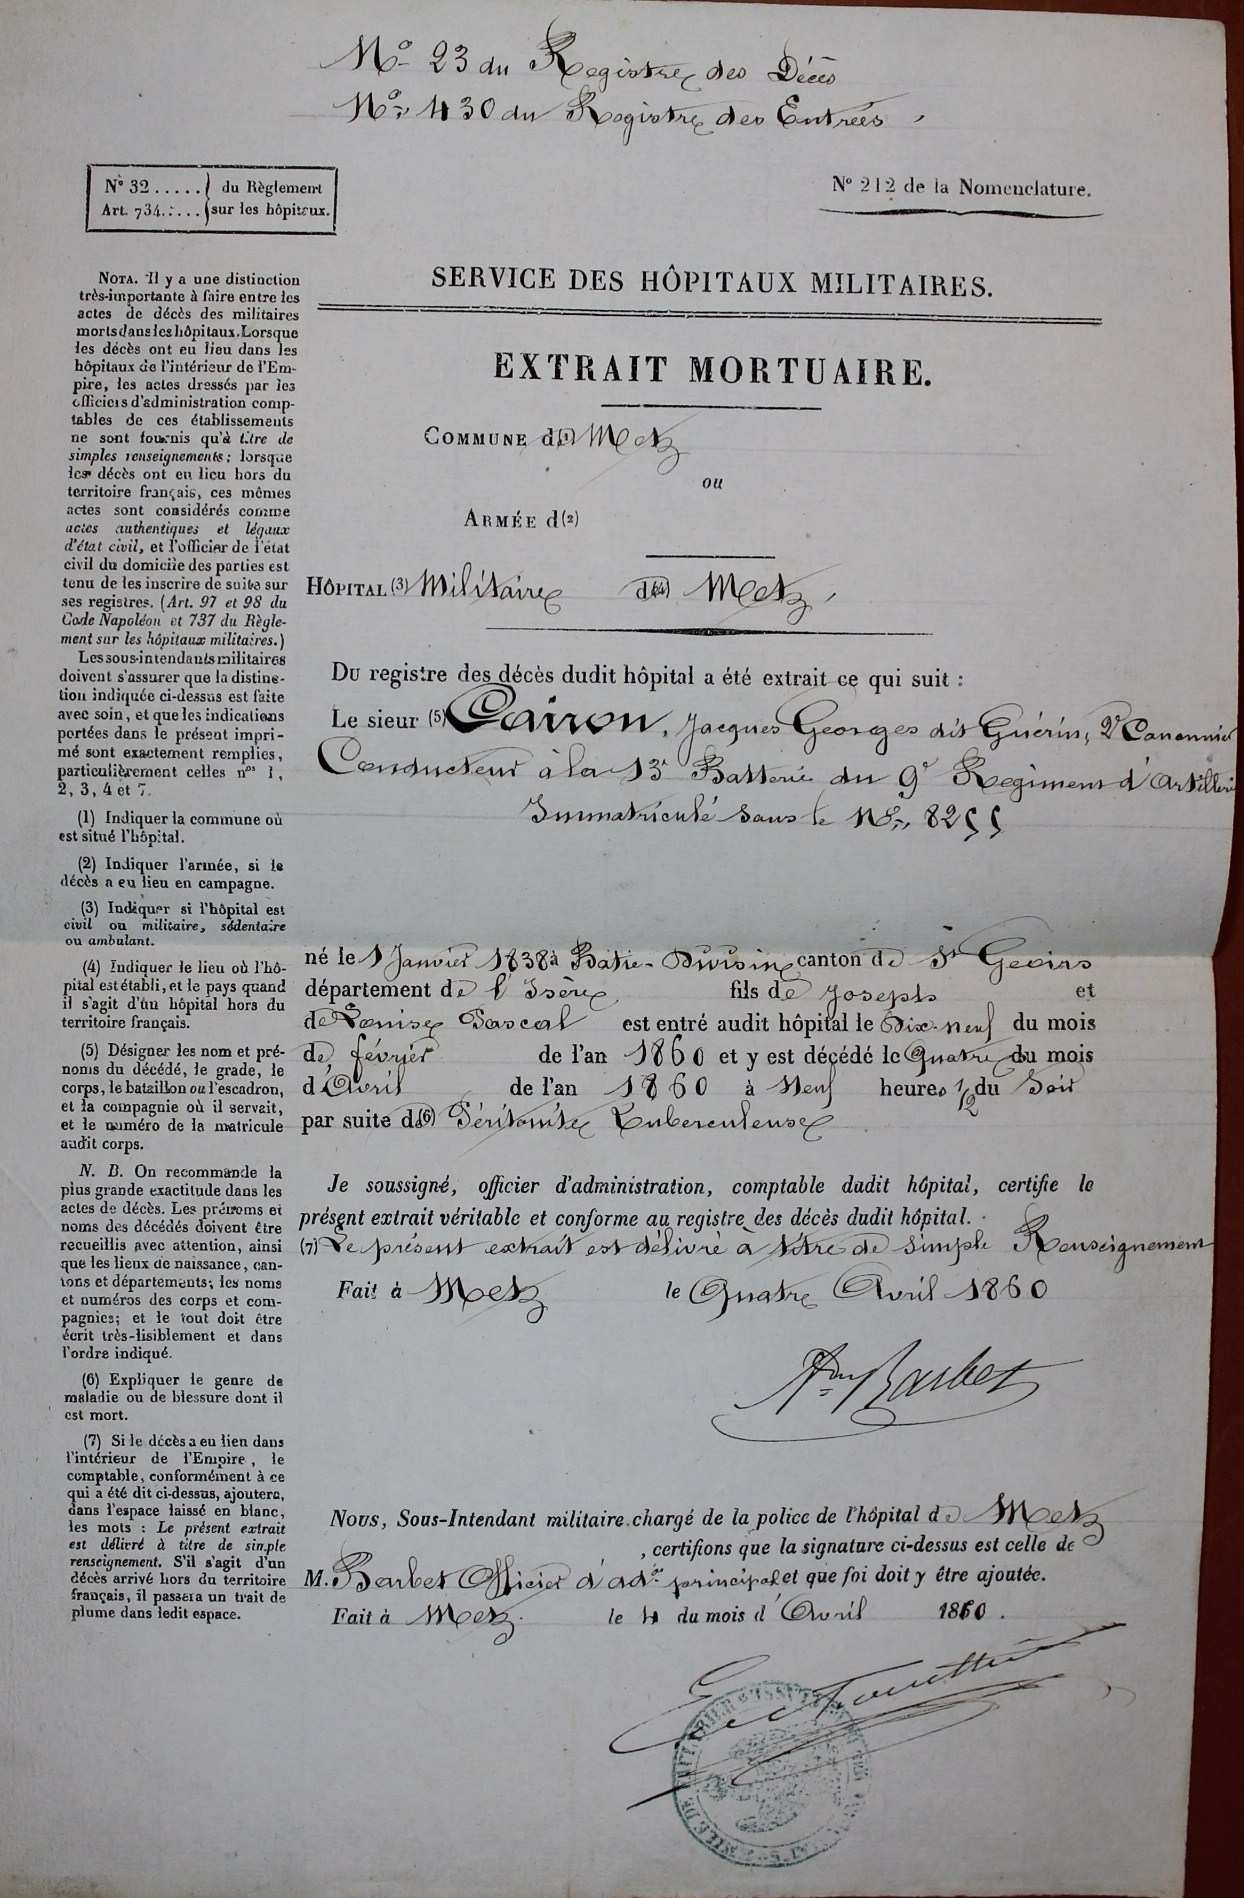 No 23 du Registre des Décès
No 430 du Registre des Entrées
No 32 ..... du Règlement
Art. 734 ..... sur les hôpitaux.
No 212 de la Nomenclature.
SERVICE DES HÔPITAUX MILITAIRES.
EXTRAIT MORTUAIRE.
COMMUNE d(1) Metz
ou
ARMÉE d(2)
HÔPITAL (3) Militaire d(4) Metz
DU registre des décès dudit hôpital a été extrait ce qui suit :
Le sieur (5) Cairon, Jacques Georges dit Guérin, 2e Canonnier
Conducteur à la 13e Batterie du 9e Régiment d'Artillerie
Immatriculé sous le No 8255
né le 1 Janvier 1838 à Batie-Divisin canton de St Geoirs
département de l'Isère fils de Joseph et
de Louise Pascal est entré audit hôpital le Dix-neuf du mois
de février de l'an 1860 et y est décédé le Quatre du mois
d'Avril de l'an 1860 à Neuf heures 1/2 du Soir
par suite de (6) Péritonite Tuberculeuse
Je soussigné, officier d'administration, comptable dudit hôpital, certifie le
présent extrait véritable et conforme au registre des décès dudit hôpital.
(7) Le présent extrait est délivré à titre de simple Renseignement
Fait à Metz le Quatre Avril 1860
Barbet
Nous, Sous-Intendant militaire chargé de la police de l'hôpital de Metz
, certifions que la signature ci-dessus est celle de
M. Barbet Officier d'adon principal et que foi doit y être ajoutée.
Fait à Metz le 4 du mois d'Avril 1860.
NOTA. Il y a une distinction
très-importante à faire entre les
actes de décès des militaires
morts dans les hôpitaux. Lorsque
les décès ont eu lieu dans les
hôpitaux de l'intérieur de l'Em-
pire, les actes dressés par les
officiers d'administration comp-
tables de ces établissements
ne sont fournis qu'à titre de
simples renseignements ; lorsque
les décès ont eu lieu hors du
territoire français, ces mêmes
actes sont considérés comme
actes authentiques et légaux
d'état civil, et l'officier de l'état
civil du domicile des parties est
tenu de les inscrire de suite sur
ses registres. (Art. 97 et 98 du
Code Napoléon et 737 du Règle-
ment sur les hôpitaux militaires.)
Les sous-intendants militaires
doivent s'assurer que la distinc-
tion indiquée ci-dessus est faite
avec soin, et que les indications
portées dans le présent impri-
mé sont exactement remplies,
particulièrement celles nos 1,
2, 3, 4 et 7.
(1) Indiquer la commune où
est situé l'hôpital.
(2) Indiquer l'armée, si le
décès a eu lieu en campagne.
(3) Indiquer si l'hôpital est
civil ou militaire, sédentaire
ou ambulant.
(4) Indiquer le lieu où l'hô-
pital est établi, et le pays quand
il s'agit d'un hôpital hors du
territoire français.
(5) Désigner les nom et pré-
noms du décédé, le grade, le
corps, le bataillon ou l'escadron,
et la compagnie où il servait,
et le numéro de la matricule
audit corps.
N. B. On recommande la
plus grande exactitude dans les
actes de décès. Les prénoms et
noms des décédés doivent être
recueillis avec attention, ainsi
que les lieux de naissance, can-
tons et départements; les noms
et numéros des corps et com-
pagnies; et le tout doit être
écrit très-lisiblement et dans
l'ordre indiqué.
(6) Expliquer le genre de
maladie ou de blessure dont il
est mort.
(7) Si le décès a eu lieu dans
l'intérieur de l'Empire, le
comptable, conformément à ce
qui a été dit ci-dessus, ajoutera,
dans l'espace laissé en blanc,
les mots : Le présent extrait
est délivré à titre de simple
renseignement. S'il s'agit d'un
décès arrivé hors du territoire
français, il passera un trait de
plume dans ledit espace.